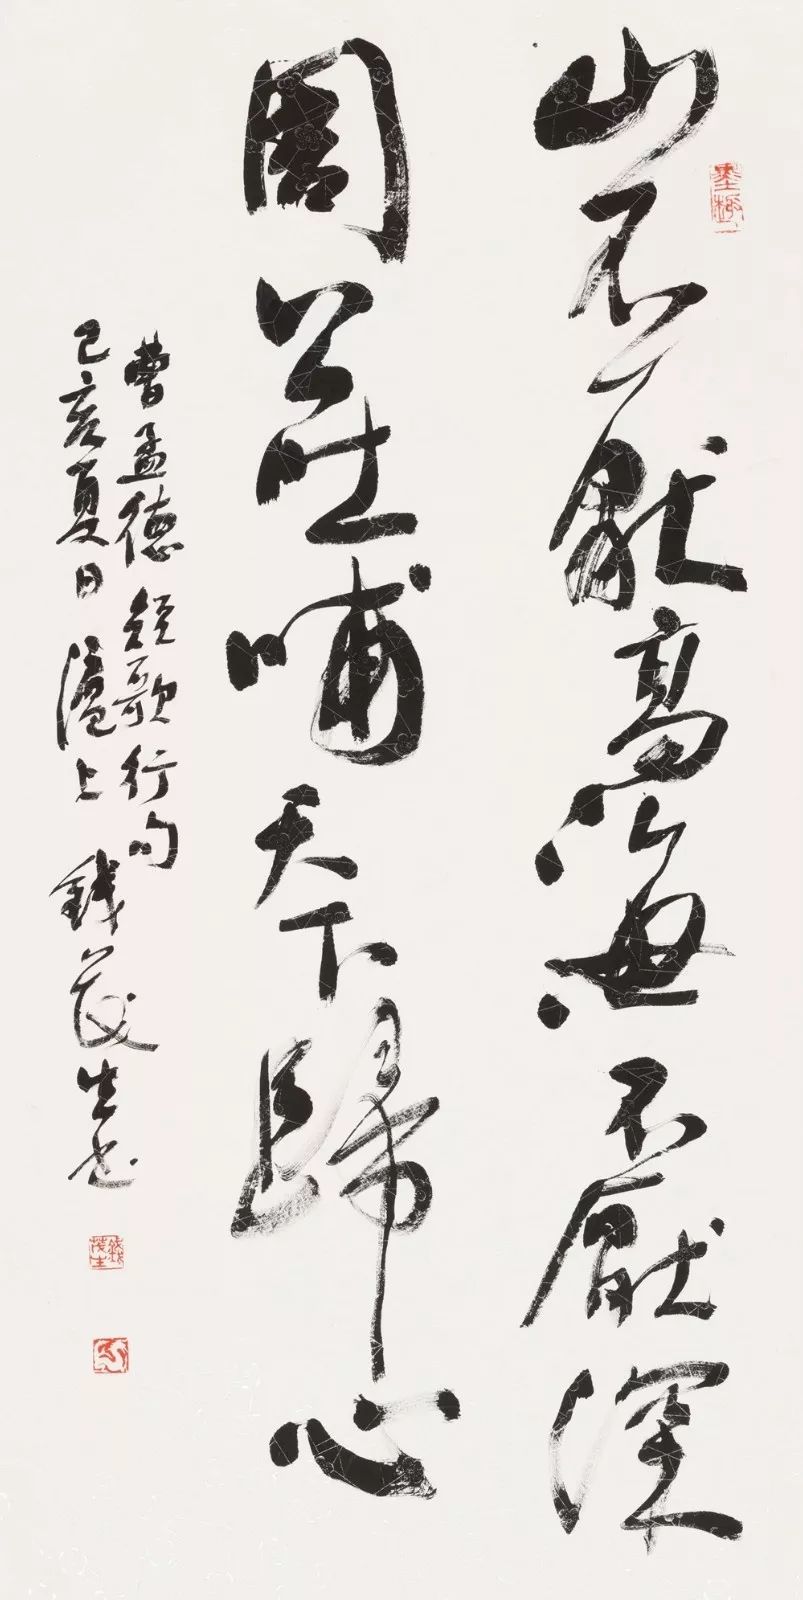 山不厭高海不厭深
周公吐哺天下歸心
曹孟德短歌行句
己亥夏日滬上錢茂生書
錢茂生